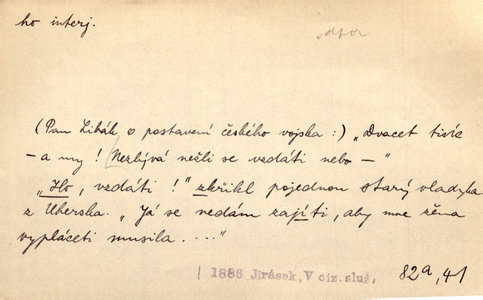 ho interj.
odpor
(Pan Libák, o postavení českého vojska:) „Dvacet tisíc
– a my! Nezbývá nežli se vzdáti nebo –"
„Ho, vzdáti!" zkřikl pojednou starý vladyka
z Uherska. „Já se nedám zajíti, aby mne žena
vypláceti musila. ..."
1886 Jirásek, V ciz. služ. 82a, 41